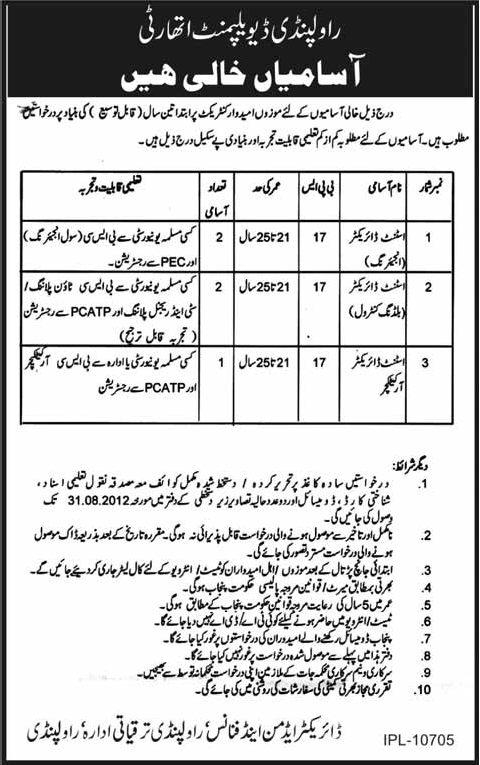 راولپنڈی ڈیویلپمنٹ اتھارٹی
آسامیاں خالی ہیں
درج ذیل خالی آسامیوں کے لئے موزوں امیدوار کنٹریکٹ پر ابتدا تین سال (قابل توسیع) کی بنیاد پر درخواستیں
مطلوب ہیں۔ آسامیوں کے لئے مطلوبہ کم از کم تعلیمی قابلیت تجربہ اور بنیادی پے سکیل درج ذیل ہیں۔
نمبر شمار نام آسامی بی پی ایس عمر کی حد تعداد آسامی تعلیمی قابلیت و تجربہ
1 اسٹنٹ ڈائریکٹر (انجینئرنگ) 17 21 تا 25 سال 2 کسی مسلمہ یونیورسٹی سے بی ایس سی (سول انجینئرنگ) اور PEC سے رجسٹریشن۔
2 اسٹنٹ ڈائریکٹر (بلڈنگ کنٹرول) 17 21 تا 25 سال 2 کسی مسلمہ یونیورسٹی سے بی ایس سی ٹاؤن پلاننگ / سٹی اینڈ ریجنل پلاننگ اور PCATP سے رجسٹریشن (تجربہ قابل ترجیح)
3 اسٹنٹ ڈائریکٹر آرکیٹیکچر 17 21 تا 25 سال 1 کسی مسلمہ یونیورسٹی یا ادارہ سے بی ایس سی آرکیٹیکچر اور PCATP سے رجسٹریشن
دیگر شرائط:
1. درخواستیں سادہ کاغذ پر تحریر کردہ / دستخط شدہ مکمل کوائف معہ مصدقہ نقول تعلیمی اسناد،
شناختی کارڈ، ڈومیسائل اور دو عدد حالیہ تصاویر زیر دستخطی کے دفتر میں مورخہ 31.08.2012 تک
وصول کی جائیں گی۔
2. نامکمل اور تاخیر سے موصول ہونے والی درخواست قابل پذیرائی نہ ہوگی۔ مقررہ تاریخ کے بعد بذریعہ ڈاک موصول
ہونے والی درخواست مسترد تصور کی جائے گی۔
3. ابتدائی جانچ پڑتال کے بعد موزوں / اہل امیدواران کو ٹیسٹ / انٹرویو کے لئے کال لیٹر جاری کر دیئے جائیں گے۔
4. بھرتی بمطابق میرٹ / قوانین مروجہ پالیسی حکومت پنجاب ہوگی۔
5. عمر میں 5 سال کی رعایت مروجہ قوانین حکومت پنجاب کے مطابق ہوگی۔
6. ٹیسٹ / انٹرویو میں حاضر ہونے کیلئے کوئی ٹی اے / ڈی اے نہیں دیا جائے گا۔
7. پنجاب ڈومیسائل رکھنے والے امیدوران کی درخواستوں پر غور کیا جائے گا۔
8. دفتر ہذا میں پہلے سے موصول شدہ درخواست پر غور نہیں کیا جائے گا۔
9. سرکاری و نیم سرکاری محکمہ جات کے ملازمین اپنی درخواست محکمانہ توسط سے بھیجیں۔
10. تقرری مجاز بھرتی کمیٹی کی سفارشات کی روشنی میں کی جائے گی۔
ڈائریکٹر ایڈمن اینڈ فنانس، راولپنڈی ترقیاتی ادارہ، راولپنڈی
IPL-10705